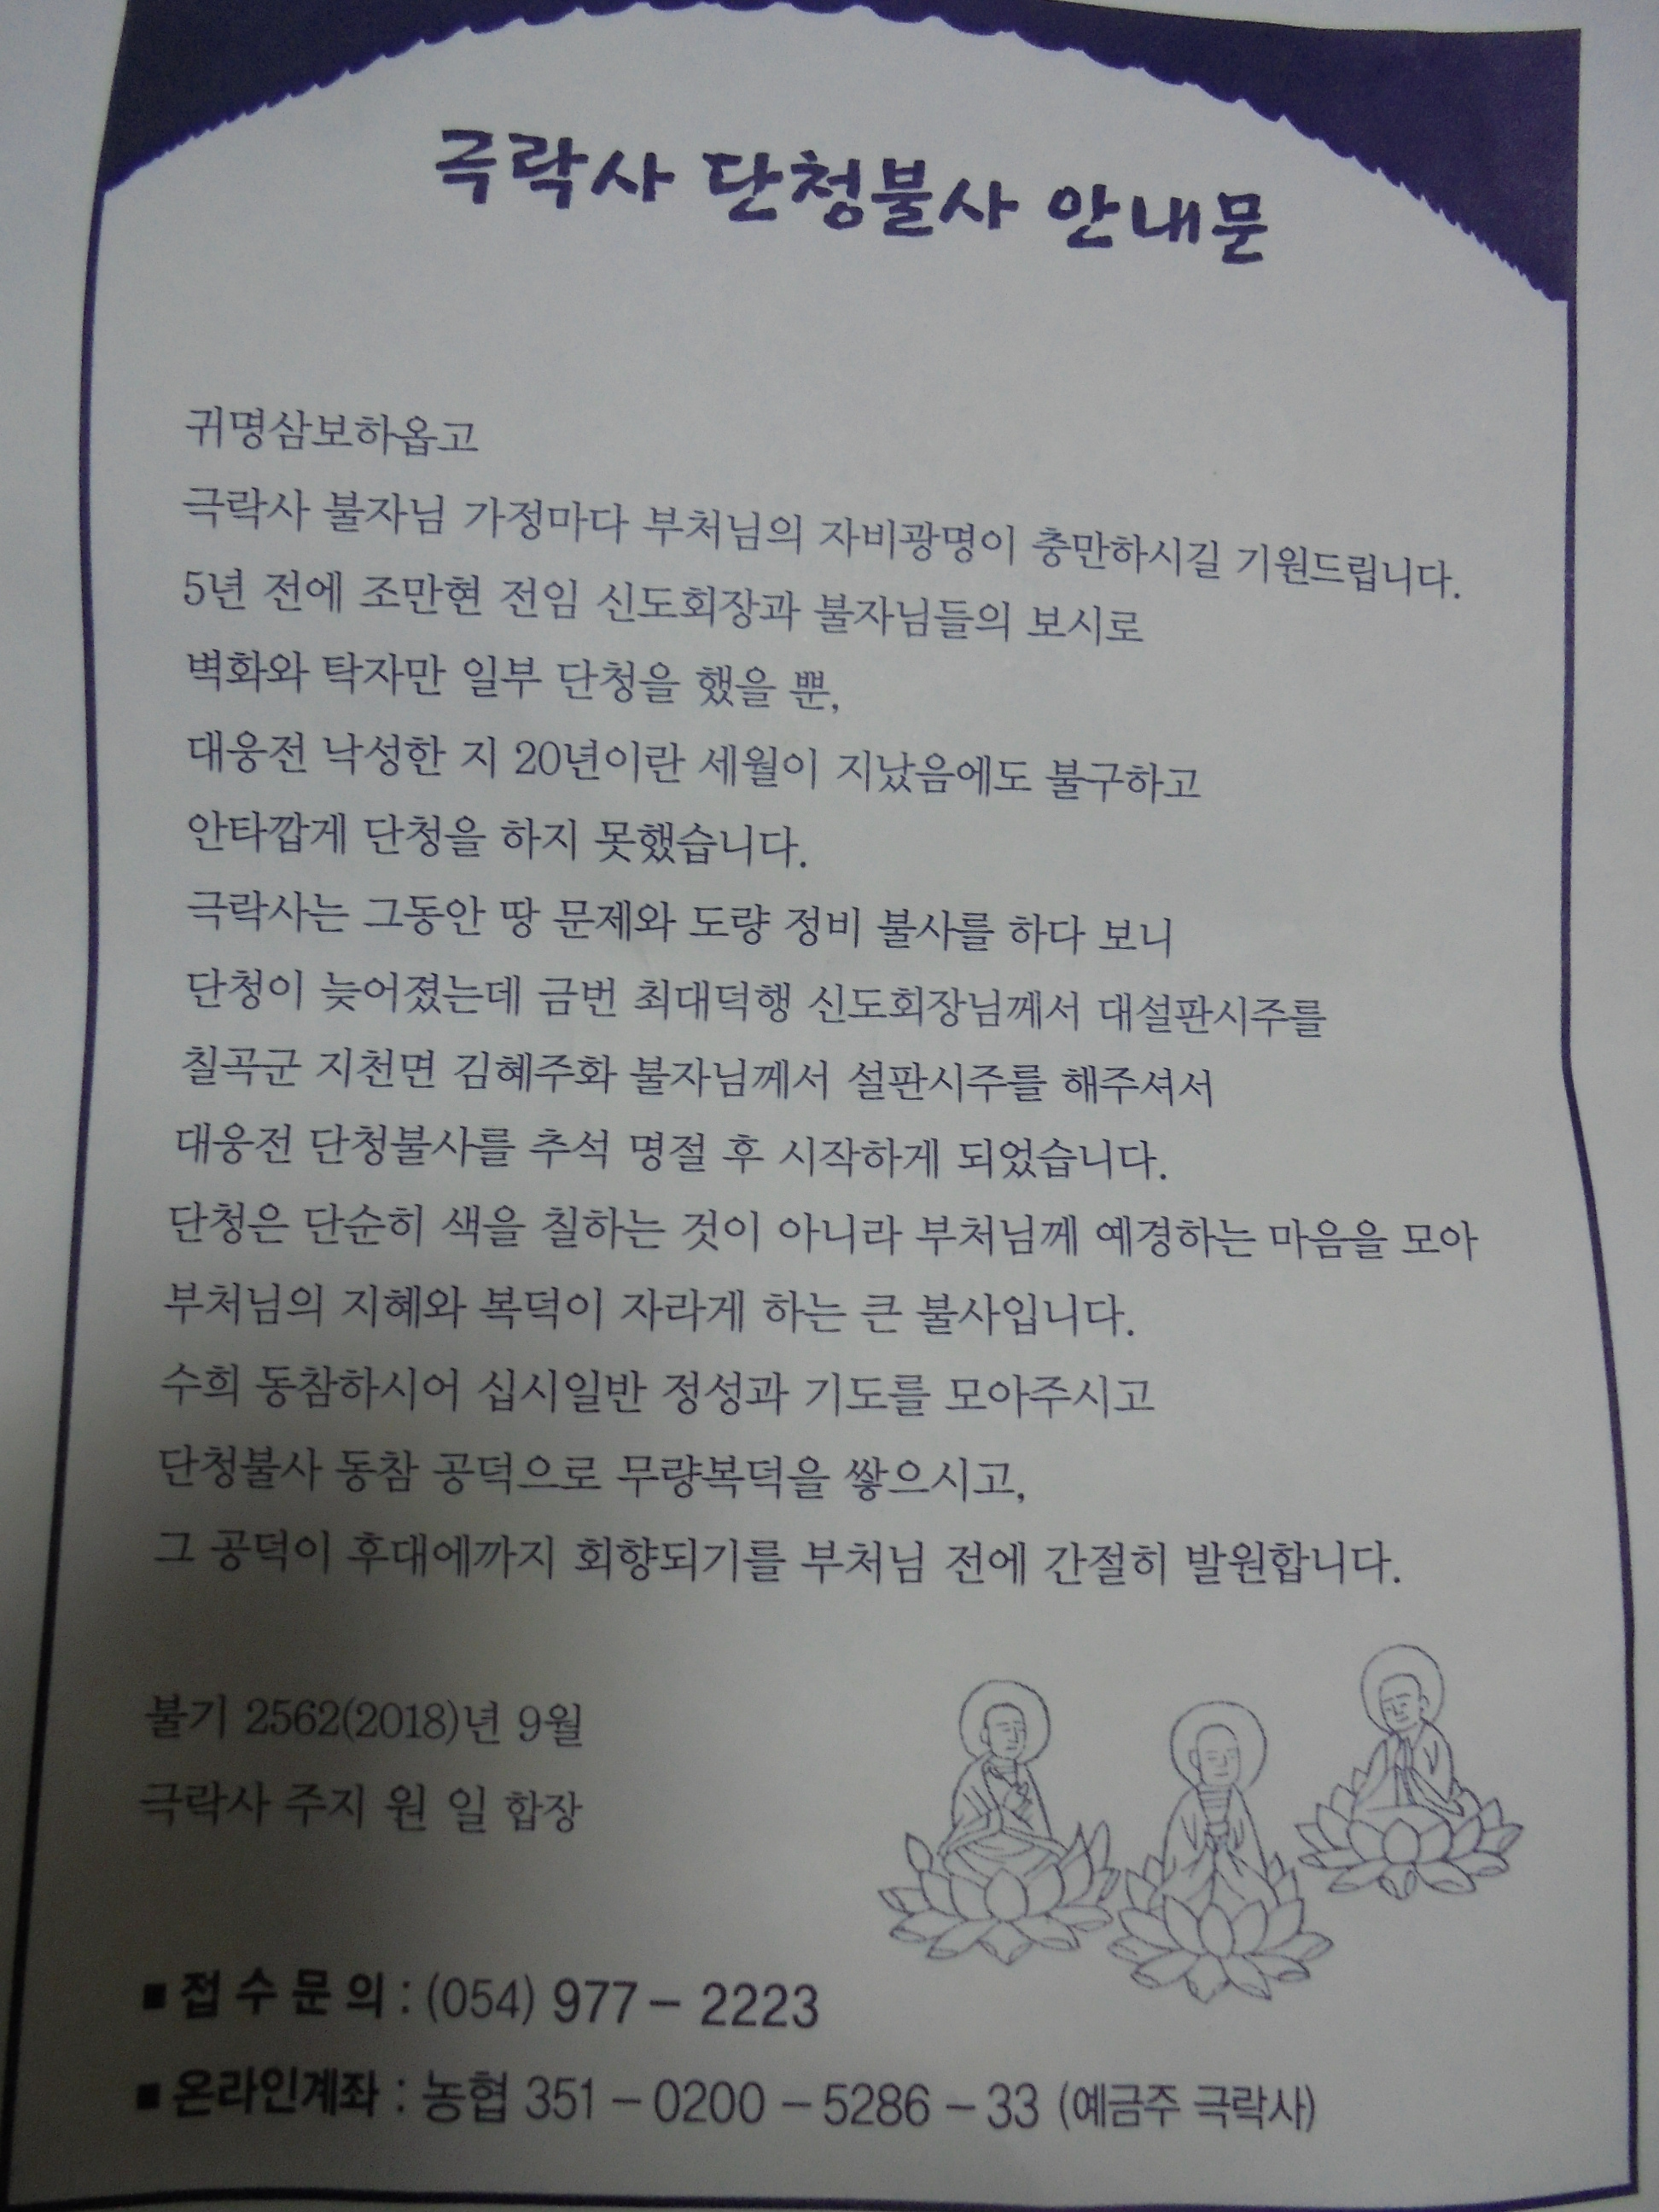 극락사 단청불사 안내문
귀명삼보하옵고
극락사 불자님 가정마다 부처님의 자비광명이 충만하시길 기원드립니다.
5년 전에 조만현 전임 신도회장과 불자님들의 보시로
벽화와 탁자만 일부 단청을 했을 뿐,
대웅전 낙성한 지 20년이란 세월이 지났음에도 불구하고
안타깝게 단청을 하지 못했습니다.
극락사는 그동안 땅 문제와 도량 정비 불사를 하다 보니
단청이 늦어졌는데 금번 최대덕행 신도회장님께서 대설판시주를
칠곡군 지천면 김혜주화 불자님께서 설판시주를 해주셔서
대웅전 단청불사를 추석 명절 후 시작하게 되었습니다.
단청은 단순히 색을 칠하는 것이 아니라 부처님께 예경하는 마음을 모아
부처님의 지혜와 복덕이 자라게 하는 큰 불사입니다.
수희 동참하시어 십시일반 정성과 기도를 모아주시고
단청불사 동참 공덕으로 무량복덕을 쌓으시고,
그 공덕이 후대에까지 회향되기를 부처님 전에 간절히 발원합니다.
불기 2562(2018)년 9월
극락사 주지 원 일 합장
■ 접 수 문 의 : (054) 977 - 2223
■ 온라인계좌 : 농협 351 - 0200 - 5286 - 33 (예금주 극락사)